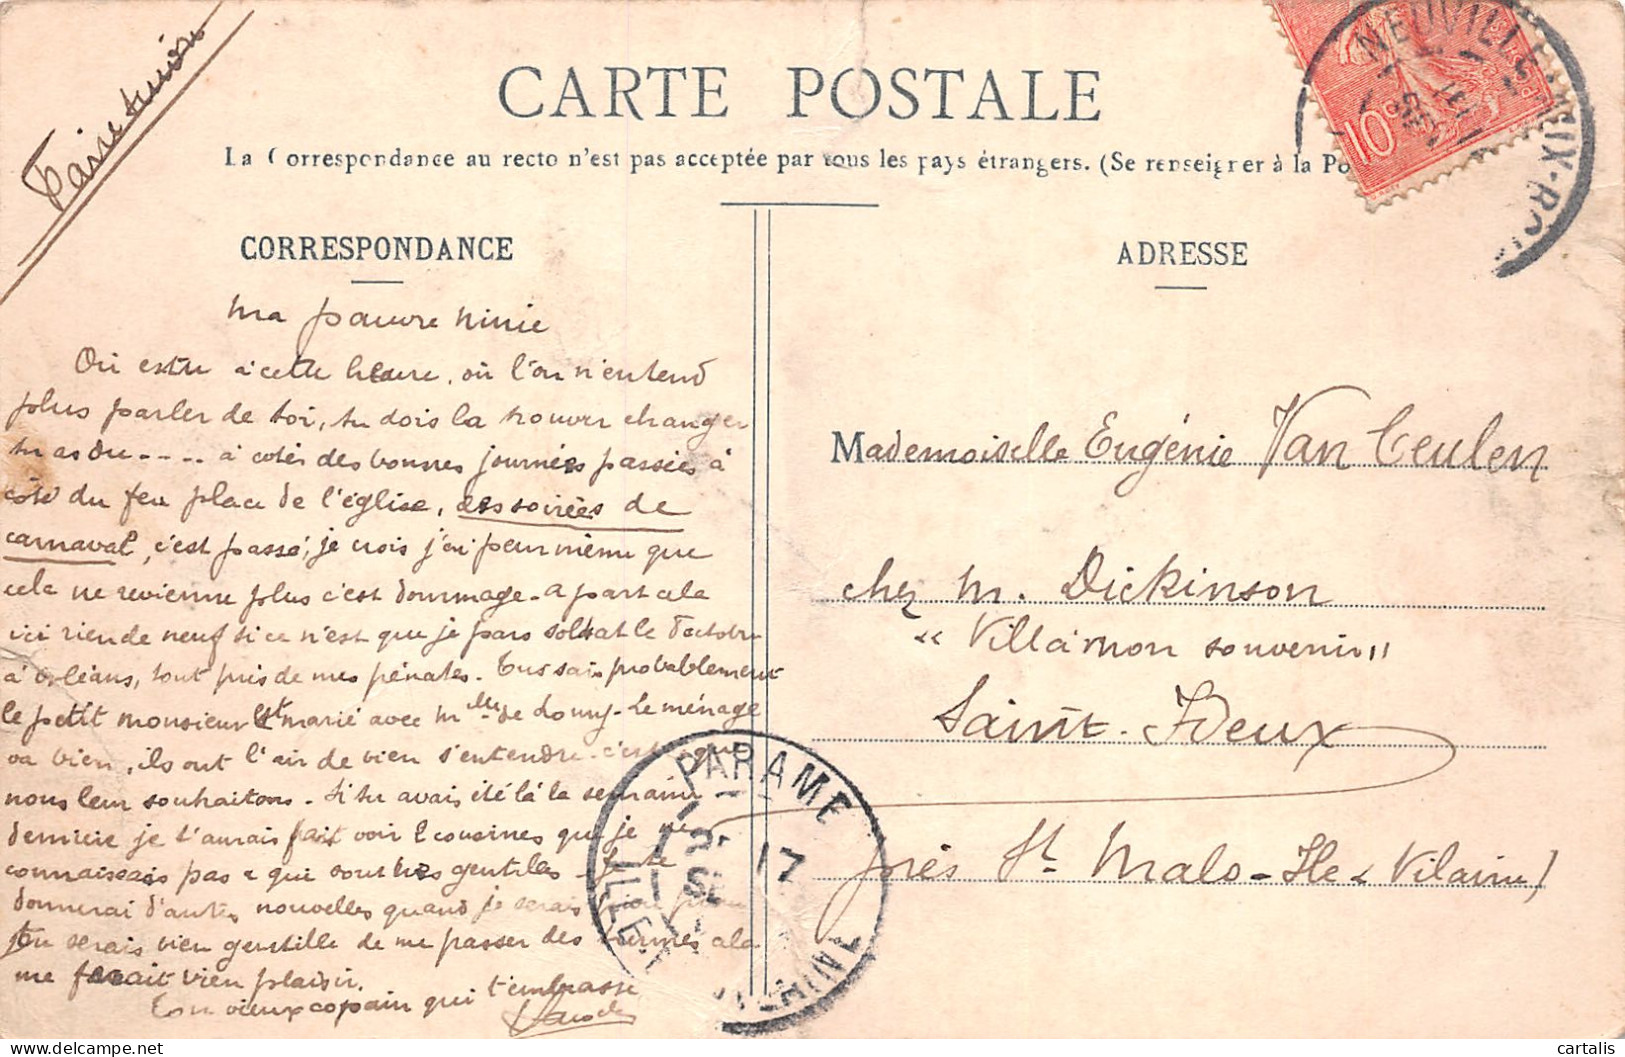 CARTE POSTALE
La Correspondance au recto n'est pas acceptée par tous les pays étrangers. (Se renseigner à la Po
NEUVILLE
10c
CORRESPONDANCE
ADRESSE
ma pauvre Ninie
Où es tu à cette heure, où l'on n'entend
plus parler de toi, tu dois la trouver changer
tu as du ---- à côtés des bonnes journées passées à
côté du feu place de l'église, des soirées de
carnaval, c'est passé, je crois j'ai peur même que
cela ne revienne plus c'est dommage - a part cela
ici rien de neuf si ce n'est que je pars soldat le 7 octobre
à Orléans, tout près de mes pénates. Tu sais probablement
le petit monsieur est marié avec Mlle de Loury - Le ménage
va bien, ils ont l'air de bien s'entendre. c'est que
nous leur souhaitons. Si tu avais été là la semaine
dernière je t'aurais fait voir 2 cousines que je ne
connaissais pas & qui sont très gentilles. Je te
donnerai d'autres nouvelles quand je serai
Tu serais bien gentille de me passer des tiennes cela
me ferait bien plaisir.
Ton vieux copain qui t'embrasse
Mademoiselle Eugénie Van Ceulen
chez M. Dickinson
"Villa mon souvenir"
Saint-Ideux
près St Malo - Ile & Vilaine)
PARAME
17
ILLE
VILAINE
cartalis